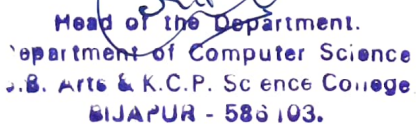 Head of the Department.
epartment of Computer Science
.B. Arts & K.C.P. Sc ence College
BIJAPUR - 586 103.